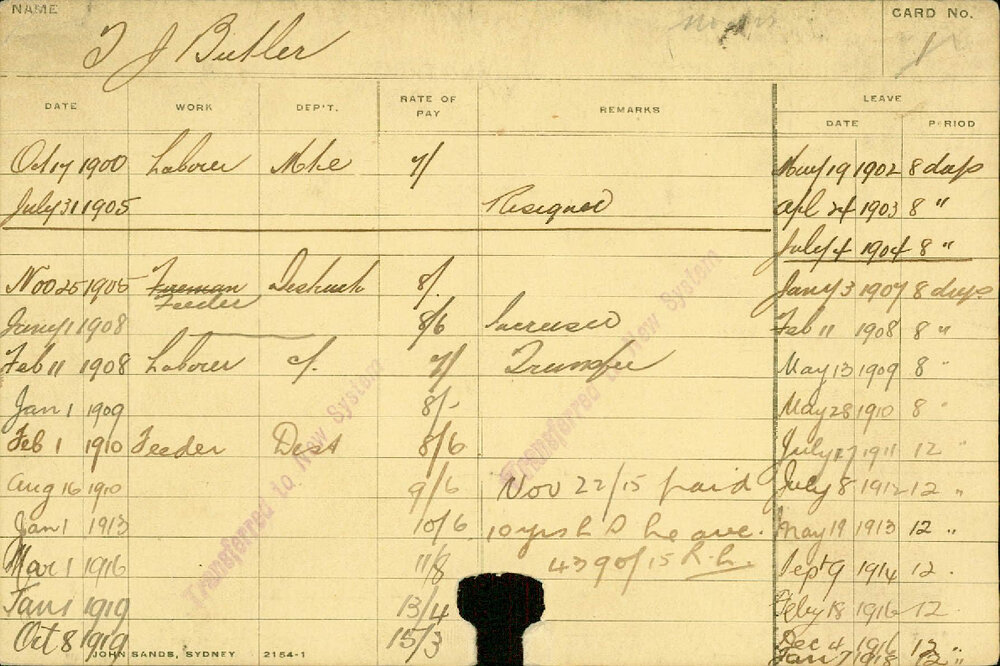 NAME T J Butler CARD No. 1
DATE WORK DEP'T. RATE OF PAY REMARKS LEAVE
DATE PERIOD
Oct 17 1900 Laborer 7/ May 19 1902 8 days
July 31 1905 Resigned Apl 24 1903 8 "
July 4 1904 8 "
Nov 25 1905 Fireman Feeder Destruct 8/. Jany 3 1907 8 days
Jany 1 1908 8/6 Increased Feb 11 1908 8 "
Feb 11 1908 Laborer 7/ Transfer May 13 1909 8 "
Jan 1 1909 8/- May 28 1910 8 "
Feb 1 1910 Feeder Dest 8/6 July 17 1911 12 "
Aug 16 1910 9/6 Nov 22/15 paid July 8 1912 12 "
Jan 1 1913 10/6 10 yrs L S Leave. May 19 1913 12 "
Mar 1 1916 11/8 4390/15 Sept 9 1914 12 "
Jan 1 1919 13/4 Feby 18 1916 12
Oct 8 1919 15/3 Dec 4 1916 12 "
Jan 7 1918 12 "
Transferred to New System
Transferred to New System
JOHN SANDS, SYDNEY 2154-1